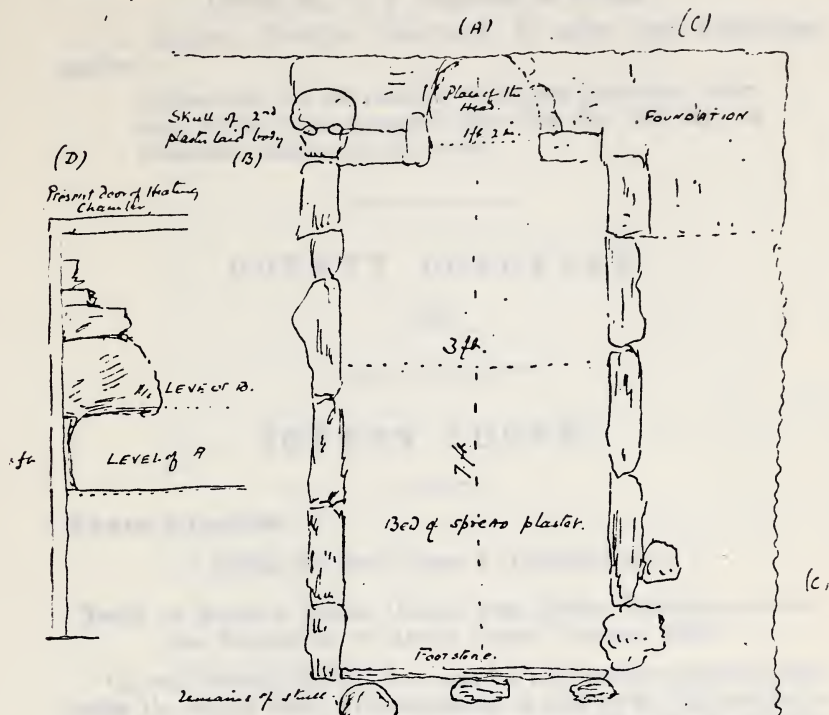 (A)
(C)
Place of the
Head.
1 ft 2 in.
FOUNDATION
Skull of 2nd
plaster laid body
(B)
(D)
Present Door of Heating
Chamber
3 ft.
LEVEL OF B.
LEVEL of A
ft
7 ft
Bed of spread plaster.
(C)
Footstone.
Remains of skull.